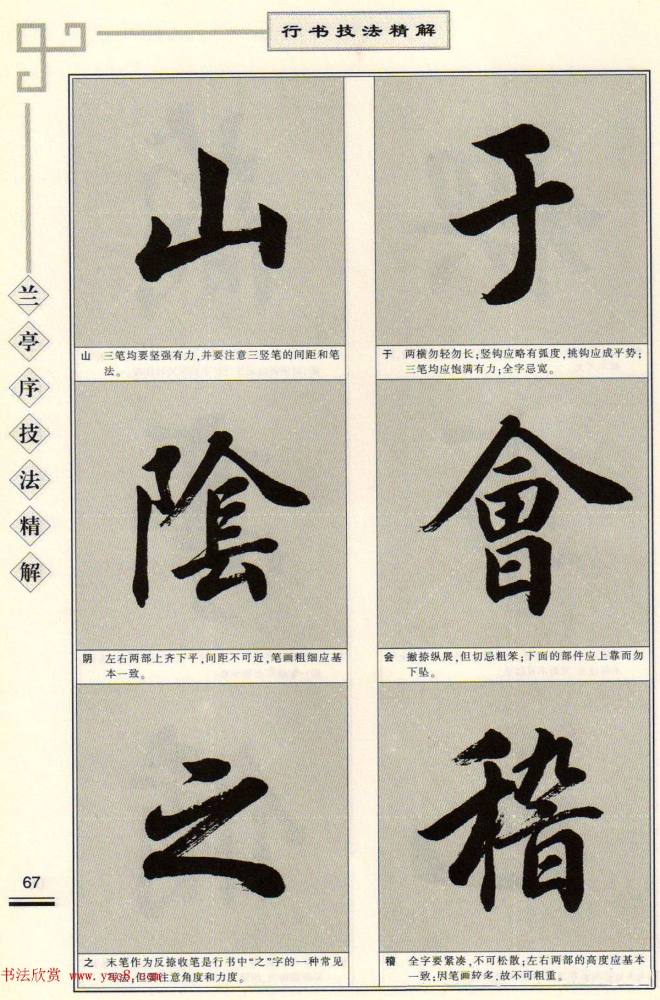 行书技法精解
兰亭序技法精解
于
于 两横勿轻勿长；竖钩应略有弧度，挑钩应成平势；
三笔均应饱满有力；全字忌宽。
會
会 撇捺纵展，但切忌粗笨；下面的部件应上靠而勿
下坠。
稽
稽 全字要紧凑，不可松散；左右两部的高度应基本
一致；因笔画较多，故不可粗重。
山
山 三笔均要坚强有力，并要注意三竖笔的间距和笔
法。
陰
阴 左右两部上齐下平，间距不可近，笔画粗细应基
本一致。
之
之 末笔作为反捺收笔是行书中“之”字的一种常见
写法，但要注意角度和力度。
67
书法欣赏 www.yac8.com